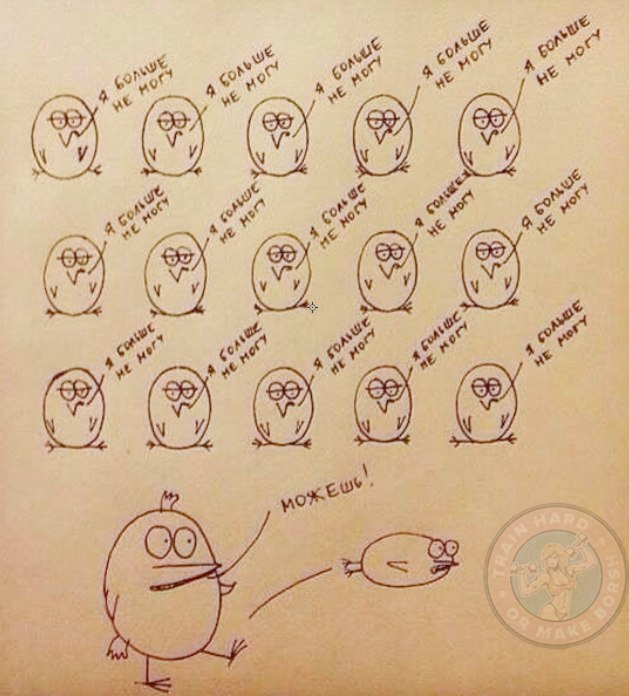 Я БОЛЬШЕ
НЕ МОГУ
Я БОЛЬШЕ
НЕ МОГУ
Я БОЛЬШЕ
НЕ МОГУ
Я БОЛЬШЕ
НЕ МОГУ
Я БОЛЬШЕ
НЕ МОГУ
Я БОЛЬШЕ
НЕ МОГУ
Я БОЛЬШЕ
НЕ МОГУ
Я БОЛЬШЕ
НЕ МОГУ
Я БОЛЬШЕ
НЕ МОГУ
Я БОЛЬШЕ
НЕ МОГУ
Я БОЛЬШЕ
НЕ МОГУ
Я БОЛЬШЕ
НЕ МОГУ
Я БОЛЬШЕ
НЕ МОГУ
Я БОЛЬШЕ
НЕ МОГУ
Я БОЛЬШЕ
НЕ МОГУ
МОЖЕШЬ!
TRAIN HARD
OR MAKE BORSH